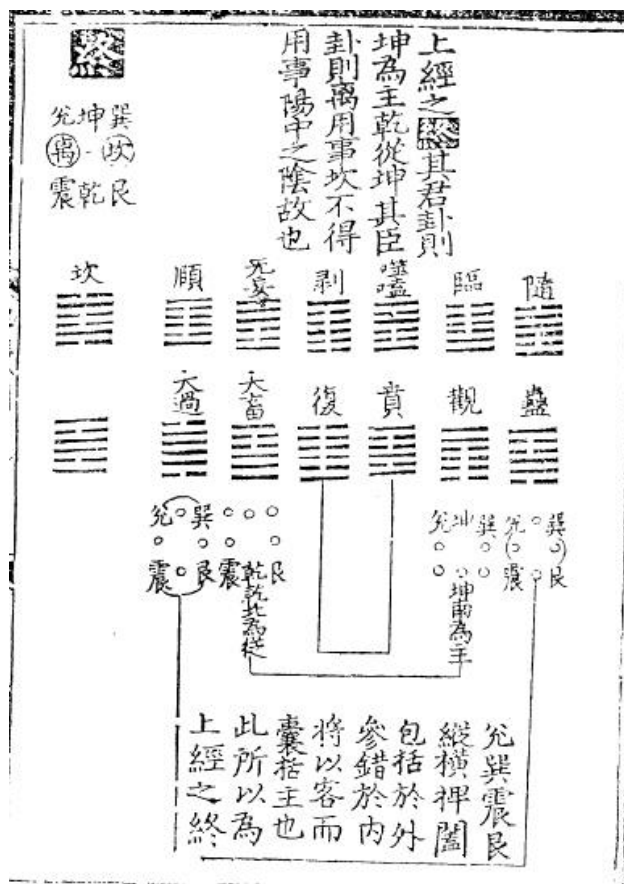 上經之終其君卦則
坤為主乾從坤其臣
卦則离用事坎不得
用事陽中之陰故也
終
巽坤兊
坎离
艮乾震
隨
臨
噬嗑
剥
无妄
順
坎
蠱
觀
賁
復
大畜
大過
巽兊
艮震
巽坤兊
坤南為主
艮震
乾乾北為從
巽兊
艮震
兊巽震艮
縱橫捭闔
包括於外
參錯於内
將以客而
囊括主也
此所以為
上經之終